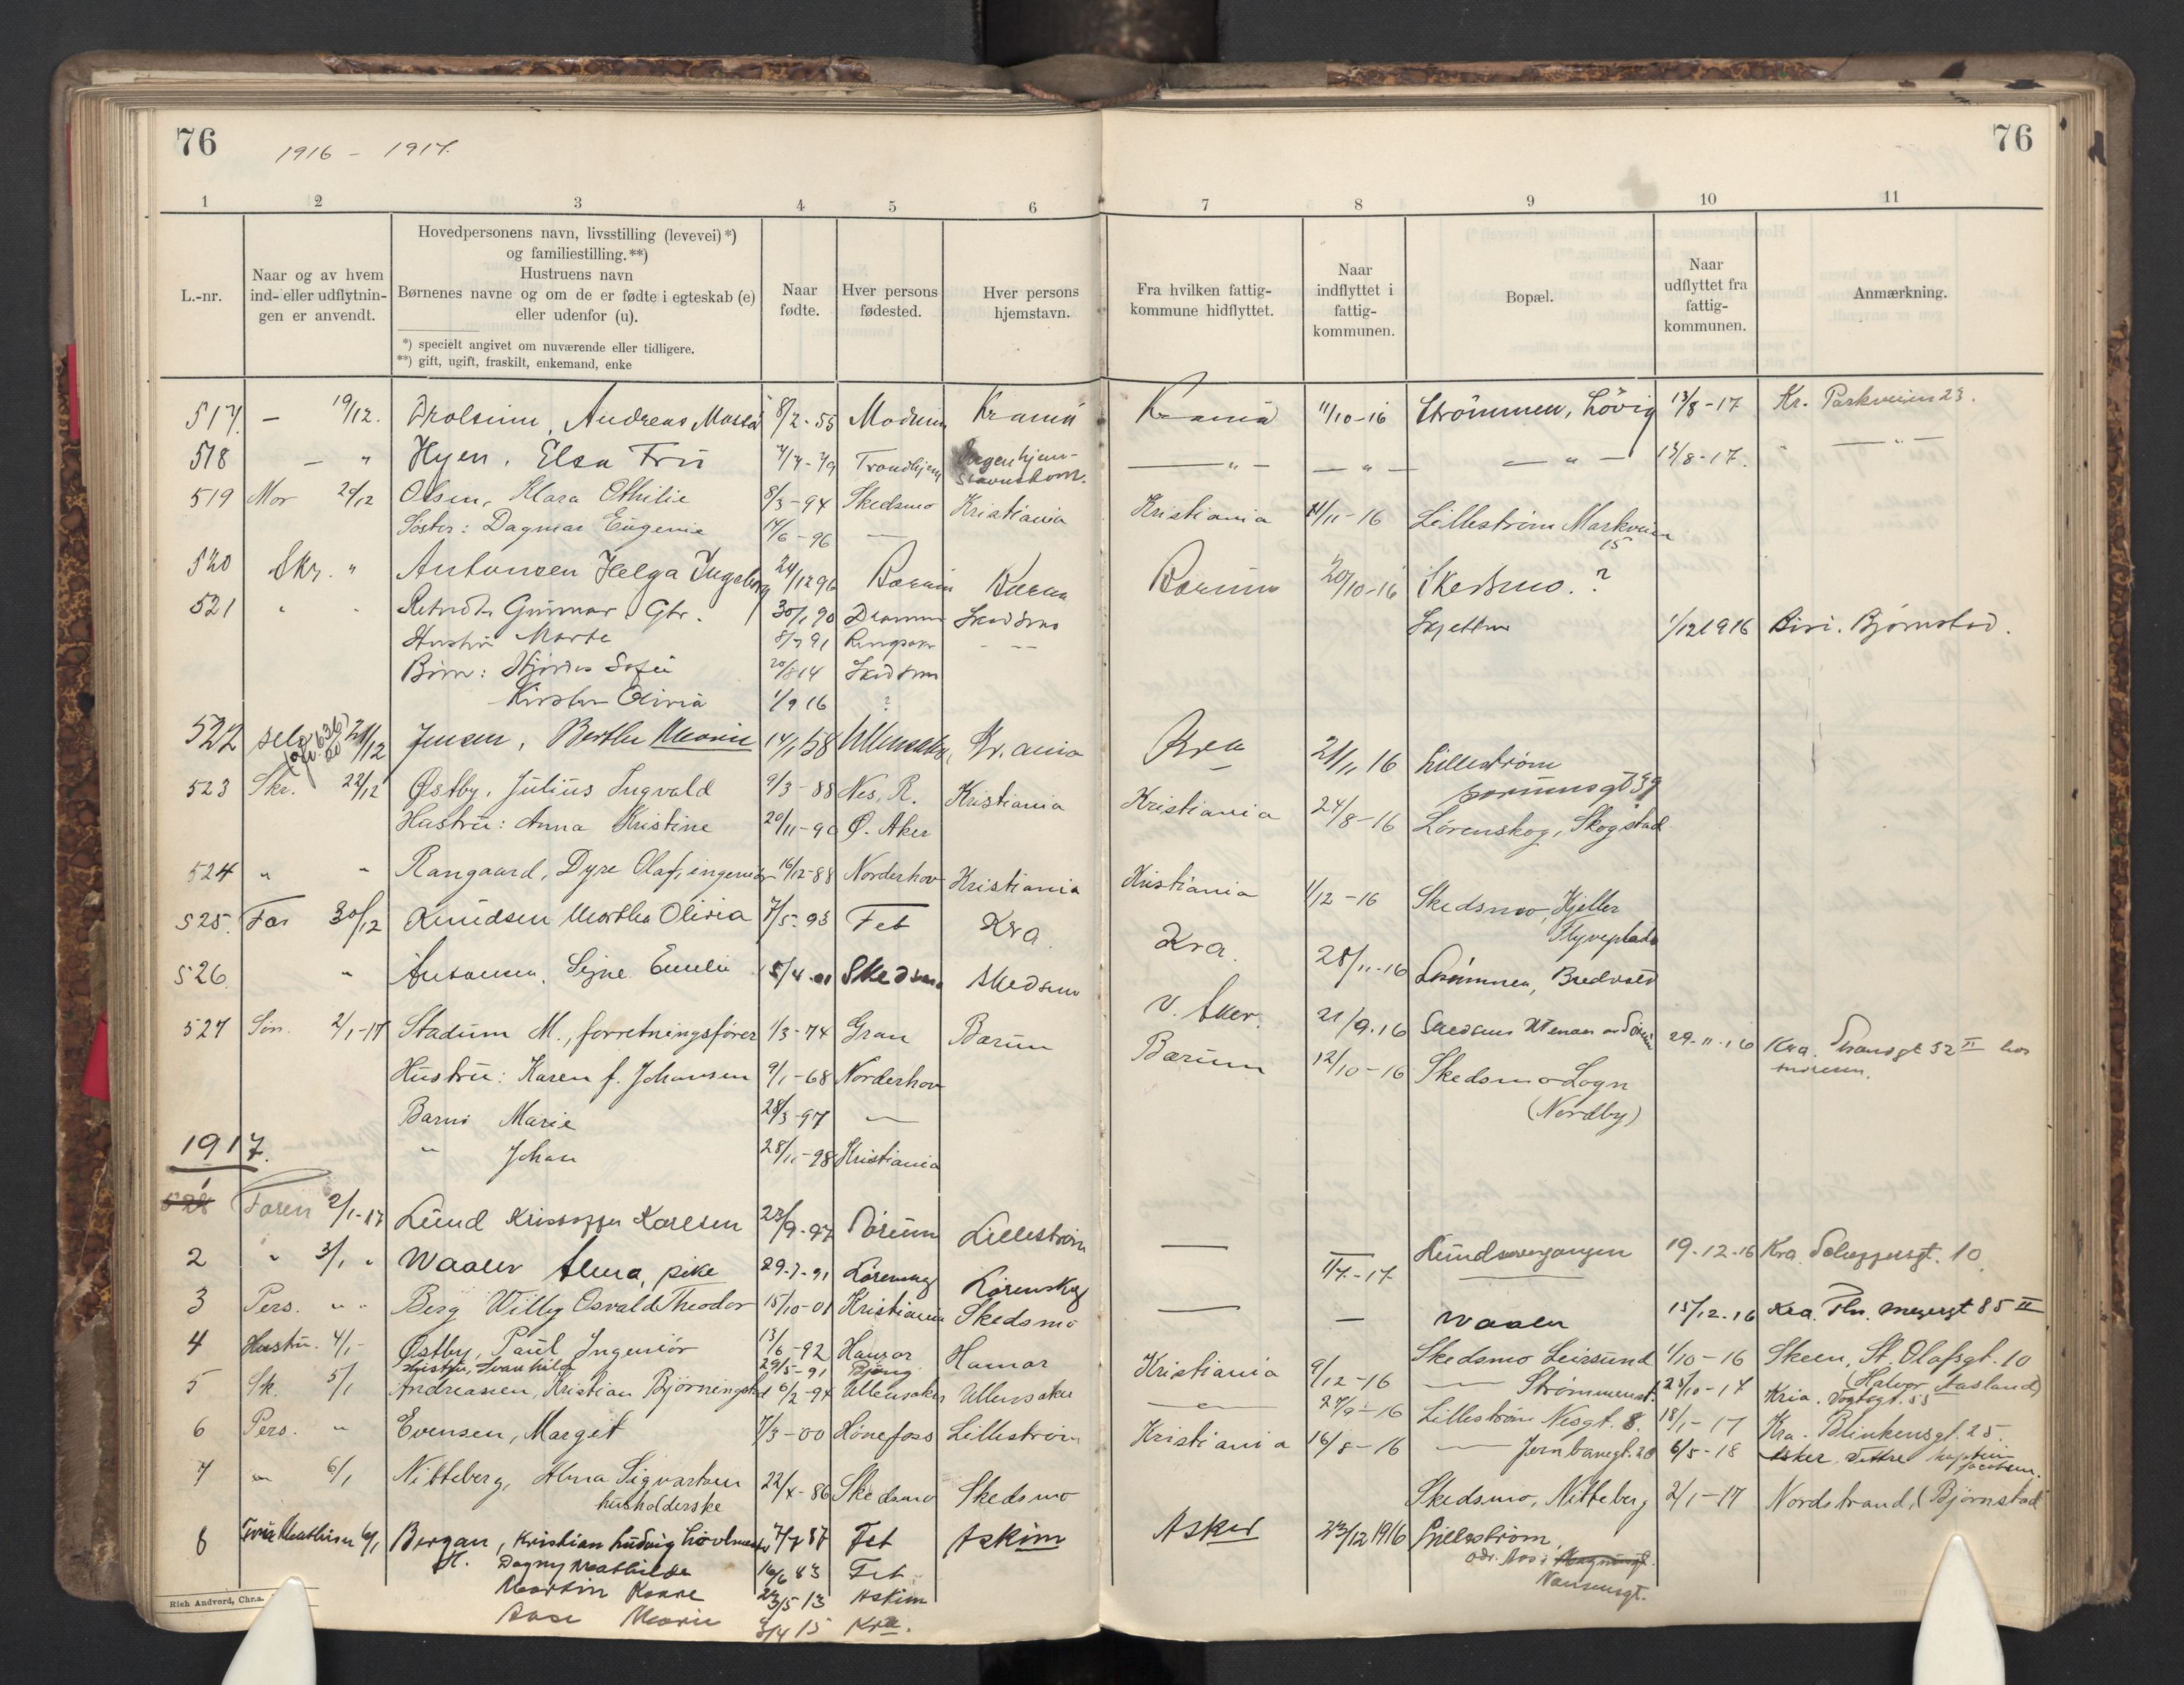 76
1916 - 1917.
76
1 2 3 4 5 6 7 8 9 10 11
L.-nr.
Naar og av hvem
ind- eller udflytnin-
gen er anvendt.
Hovedpersonens navn, livsstilling (levevei) *)
og familiestilling. **)
Hustruens navn
Børnenes navne og om de er fødte i egteskab (e)
eller udenfor (u).
*) specielt angivet om nuværende eller tidligere.
**) gift, ugift, fraskilt, enkemand, enke
Naar
fødte.
Hver persons
fødested.
Hver persons
hjemstavn.
Fra hvilken fattig-
kommune hidflyttet.
Naar
indflyttet i
fattig-
kommunen.
Bopæl.
Naar
udflyttet fra
fattig-
kommunen.
Anmærkning.
517. — 19/12. Andreas 8/2-55 Modum Kr.ania Kr.ania 11/10-16 Strömmen, Lövig 13/8-17 Kr. Parkveien 23.
518 — " Hyen, Elsa Frü 4/4-79 Trondhjem — " — — " — — " — 13/8-17. — " —
519 Mor 20/12 Olsen, Klara Othilie 8/3-94 Skedsmo Kristiania Kristiania 11/11-16 Lilleström Markveien 15
Søster: Dagmar Eugenie 14/6-96 —
520 Skr. " Antonsen Helga Ingeborg 24/12 96 Bærum Bærum Bærum 20/10-16 Skedsmo. ?
521 " " Gunnar Gbr. 30/1 90 Drammen Skedsmo Skjetten 1/12 1916 Biri. Bjørnstad.
Hustru Marte 8/7 91 — —
Børn: Hjørdis Sofie 20/8 14 Skedsmo
Kirsten Olivia 1/9 16 ?
522 selv 21/12 Jensen, Berthe Marie 14/1 58 Ullensaker, Kr.ania Kra 21/11 16 Lilleström
523 Skr. 22/12 Østby, Julius Ingvald 9/3-88 Nes, R. Kristiania Kristiania 24/8-16 Lørenskog, Skogstad
Hustru: Anna Kristine 20/11-90 Ø. Aker
524 " " Rangaard, Dyre Olaf, ingeniør 16/12-88 Norderhov Kristiania Kristiania 1/12-16 Skedsmo, Kjeller
Flyveplads
525. Far 30/12 Knudsen Martha Olivia 7/5-93 Fet Kra. Kra. 28/11-16 Strömmen, Bredvold
526. " Signe Emelie 5/4-01 Skedsmo Skedsmo V. Aker. 21/9.16 29.11.16 Kra.
527 Søn. 2/1-17 Stadum M., forretningsfører 1/3-74 Gran Bærum Bærum 12/10-16 Skedsmo Sogn
(Nordby)
Hustru: Karen f. Johansen 9/1-68 Norderhov
Barn: Marie 28/3-97 —
" Johan 28/11-98 Kristiania
1917.
1 528 Faren 2/1-17 Lund Kristoffer Karlsen 23/9-97 Sørum Lilleström — 19-12-16 Kra. 10.
2 " 3/1 " Waaler Alma, pike 29-7-91 Lørenskog Lørenskog — — Waaler 15/12.16 Kra. Thv. Meyersgt 85 II
3 Pers. " " Berg Willy Osvald Theodor 15/10-01 Kristiania Skedsmo Skedsmo Leirsund 1/10-16 Skeen, St. Olafsgt. 10
(Halvor Aasland)
4 Hustru. 4/1- Østby, Paul Ingeniør 13/6-92 Hamar Hamar Kristiania 9/12-16 — Strömmenst. 23/10-17 Kria. Vogtsgt. 55
Hustru, Svanhild 29/5-91
5 Sk. 5/1 Andreassen, Kristian Bjørningstad 6/2-94 Ullensaker Ullensaker — " — 27/9-16 Lilleström Nesgt. 8. 18/1-17 Kra. Blinkensgt. 25.
6 Pers. " Evensen, Margit 7/3-00 Hönefoss Lilleström Kristiania 16/8-16 — Jernbanegt. 20 6/5-18 Asker
7 " 6/1 Nitteberg, Alma Sigvartsen 22/4-86 Skedsmo Skedsmo Skedsmo, Nitteberg 2/1-17 Nordstrand, (Bjørnstad
husholderske
8 6/1 Bergan, Kristian Ludvig 7/7 87 Fet Askim Asker 23/12 1916 Lilleström,
Nansensgt.
H. Dagny Mathilde 16/6 83 Fet
Martin Kaare 23/5 13 Askim
Aase Marie 3/4 15 Kra.
Rich Andvord, Chr.a.